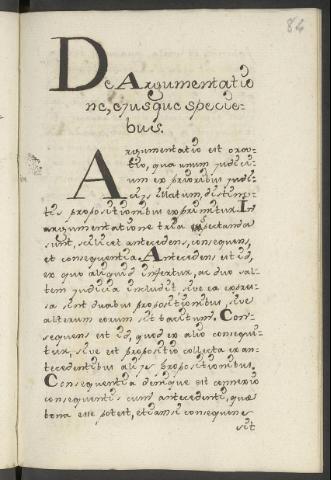 84
De Argumentatio
ne, ejusque specie-
bus.
Argumentatio est ora-
tio, qua unum judici-
um ex prioribus judi-
ciis illatum, distinc-
tis propositionibus exprimitur. In
argumentatione tria spectanda
sunt, scilicet antecedens, consequens,
et consequentia. Antecedens est id,
ex quo aliquid infertur, ac duo sal-
tem judicia includit, sive ea expres-
sa sint duabus propositionibus, sive
alterum eorum sit tacitum. Con-
sequens est id, quod ex alio consequi-
tur, sive est propositio collecta ex an-
tecedentibus aliis propositionibus.
Consequentia denique est connexio
consequentis cum antecedenti, quae
bona esse potest, etiamsi consequens
sit